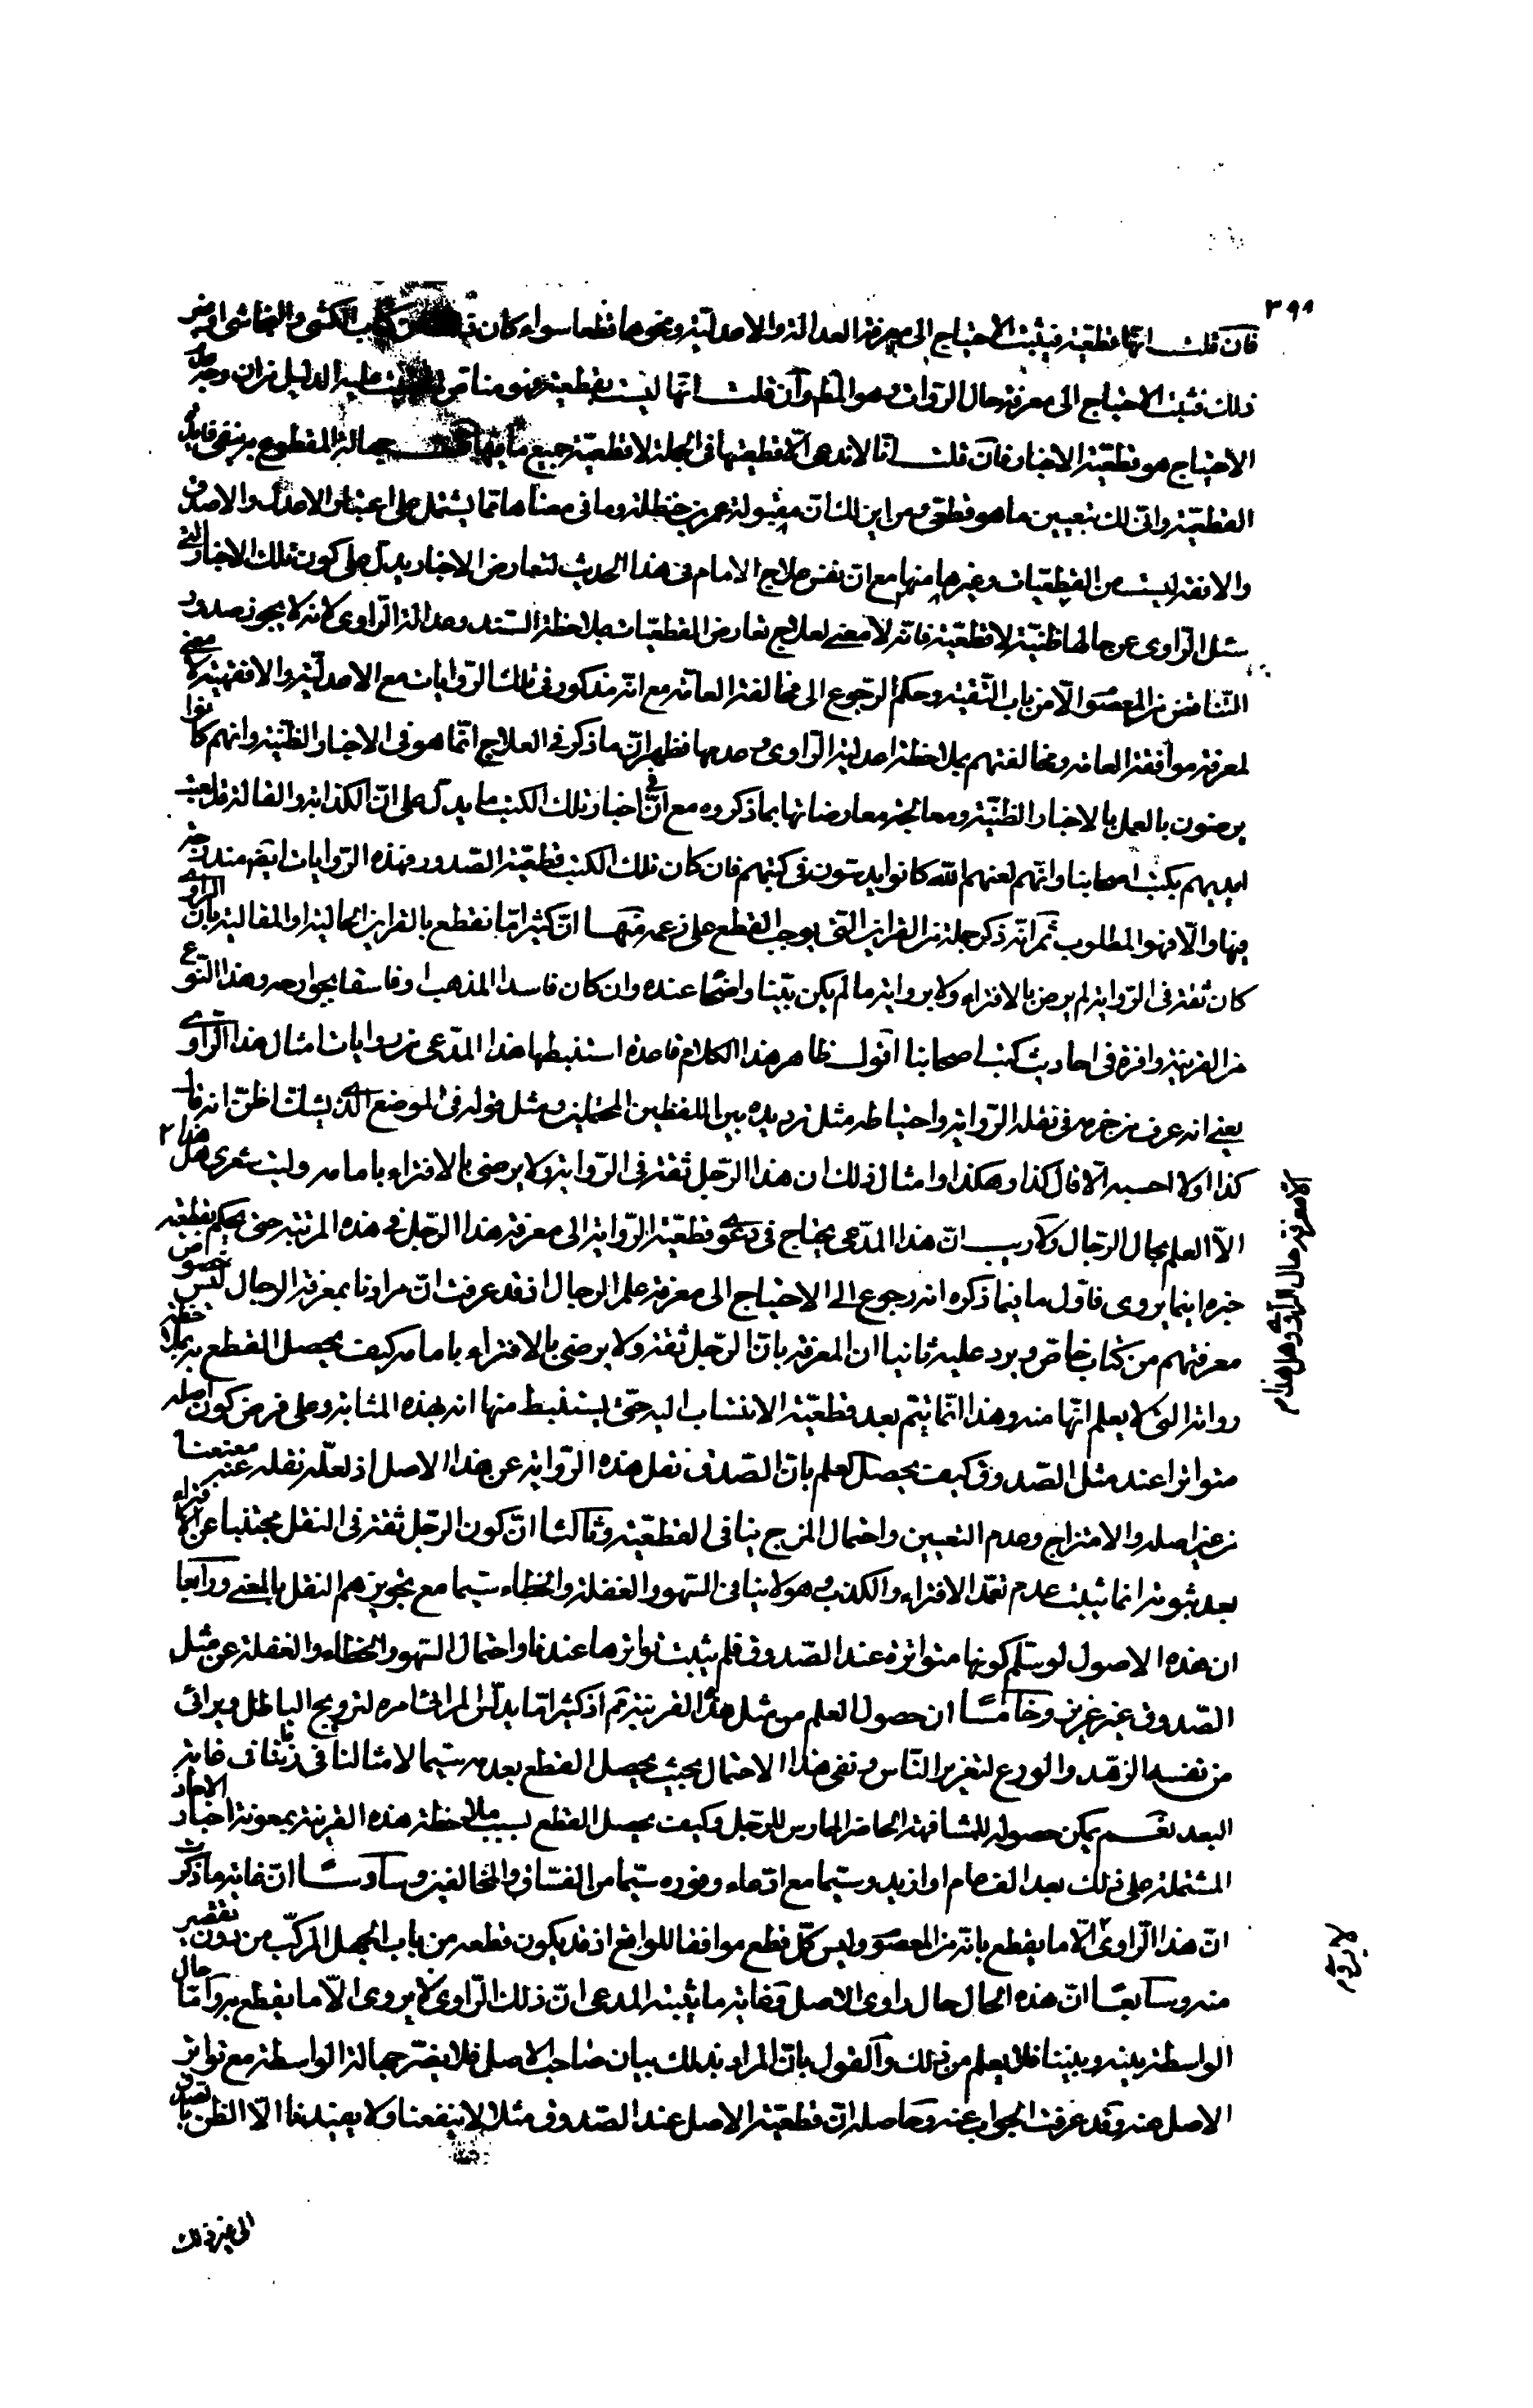 ٣٩٨
فان قلت انها قطعية فيثبت الاحتياج الى معرفة العدالة والاعدلية ونحوها قطعا سواء كان كتاب الكشي والنجاشي او غير
ذلك فثبت الاحتياج الى معرفة حال الرواة وهو المطم وان قلت انها ليست بقطعية فهو مناقض عليه الدليل من ان وجه عدم
الاحتياج هو قطعية الاخبار فان قلت انا لا ندعى الا قطعيتها في الجملة لا قطعية جميع ما فيها قلت جهالة المقطوع به ينفى فايدة
القطعية وانى لك بتعيين ما هو قطعى ومن اين لك ان مقبولة عمر بن حنظلة وما في معناها مما يشتمل على اعتبار الاعدل والاصدق
والافقه ليست من القطعيات وغيرها منها مع ان نفس علاج الامام في هذا الحديث لتعارض الاخبار يدل على كون تلك الاخبار التى
سئل الراوى عن حالها ظنية لا قطعية فانه لا معنى لعلاج تعارض القطعيات بملاحظة السند وعدالة الراوى لانه لا يجوز صدور
التناقض من المعصوم الا من باب التقية وحكم الرجوع الى مخالفة العامة مع انه مذكور في تلك الروايات مع الاعدلية والافقهية لا معنى
لمعرفة موافقة العامة ومخالفتهم بملاحظة اعدلية الراوى وعدمها فظهر ان ما ذكر في العلاج انما هو في الاخبار الظنية وانهم كانوا
يرضون بالعمل بالاخبار الظنية ومعالجة معارضاتها بما ذكروه مع ان في اخبار تلك الكتب ما يدل على ان الكذابة والقالة قد لعبت
ايديهم بكتب اصحابنا وانهم لعنهم الله كانوا يدسون في كتبهم فان كان تلك الكتب قطعية الصدور فهذه الروايات ايضم مندرجة
فيها والا فهو المطلوب ثم انه ذكر جملة من القراين التى يوجب القطع على زعمه منها ان كثيرا ما نقطع بالقراين الحالية او المقالية بان الراوى
كان ثقة في الرواية لم يرض بالافتراء ولا برواية ما لم يكن بينا واضحا عنده وان كان فاسد المذهب او فاسقا بجوارحه وهذا النوع
من القرينة وافرة في احاديث كتب اصحابنا اقول ظاهر هذا الكلام قاعدة استنبطها هذا المدعى من روايات امثال هذا الراوى
يعنى انه عرف من حزمه في نقله الرواية واحتياطه مثل ترديده بين اللفظين المحتملين ومثل قوله في الموضع الذى يشك اظن انه قال
كذا او لا احسبه الا قال كذا وهكذا وامثال ذلك ان هذا الرجل ثقة في الرواية ولا يرضى بالافتراء بامامه وليت شعرى هل هذا
الا العلم بحال الرجال ولا ريب ان هذا المدعى يحتاج في دعوى قطعية الرواية الى معرفة هذا الرجل في هذه المرتبة حتى يحكم بقطعية
خبره اينما يروى فاول ما فيما ذكره انه رجوع الى الاحتياج الى معرفة علم الرجال اذ قد عرفت ان مرادنا بمعرفة الرجال ليس خصوص
معرفتهم من كتاب خاص ويرد عليه ثانيا ان المعرفة بان الرجل ثقة ولا يرضى بالافتراء بامامه كيف يحصل القطع به بملاحظة
رواته التى لا يعلم انها منه وهذا انما يتم بعد قطعية الانتساب اليه حتى يستنبط منها انه بهذه المثابة وعلى فرض كون اصله
متواترا عند مثل الصدوق كيف يحصل العلم بان الصدوق نقل هذه الرواية عن هذا الاصل اذ لعله نقله عنه معنعنا
من غير اصله والامتزاج وعدم التعيين واحتمال المزج ينافى القطعية وثالثا ان كون الرجل ثقة في النقل مجتنبا عن الافتراء
بعد ثبوته انما يثبت عدم تعمد الافتراء والكذب وهو لا ينافى السهو والغفلة والخطاء سيما مع تجويزهم النقل بالمعنى ورابعا
ان هذه الاصول لو سلم كونها متواترة عند الصدوق فلم يثبت تواترها عندنا واحتمال السهو والخطاء والغفلة عن مثل
الصدوق غير عزيز وخامسا ان حصول العلم من مثل هذا القرينة مم اذ كثيرا ما يدلس المرائى امره لترويج الباطل ويرائى
من نفسه الزهد والورع لتغرير الناس ونفى هذا الاحتمال بحيث يحصل القطع بعده سيما لامثالنا في زماننا في غاية
البعد نعم يمكن حصوله للمشافهة الحاضر الممارس للرجل وكيف يحصل القطع بسبب ملاحظة هذه القرينة بمعونة اخبار الاحاد
المشتملة على ذلك بعد الف عام او ازيد وسيما مع ادعاء وفوره سيما من الفساق والمخالفين وسادسا ان غاية ما ذكرت
ان هذا الراوى لا يروى الا ما يقطع بانه من المعصوم وليس كل قطع موافقا للواقع اذ قد يكون قطعه من باب الجهل المركب من دون تقصير
منه وسابعا ان هذه الحال حال راوى الاصل وغاية ما يثبته المدعى ان ذلك الراوى لا يروى الا ما يقطع به واما حال
الواسطة بينه وبيننا فلا يعلم من ذلك والقول بان المراد بذلك بيان صاحب الاصل فلا يضر جهالة الواسطة مع تواتر
الاصل عنه وقد عرفت الجواب عنه وحاصله ان قطعية الاصل عند الصدوق مثلا لا ينفعنا ولا يفيدنا الا الظن بالصدق
الا معرفة حال الراوى وهل هذا م
لا يروى م
الى غير ذلك